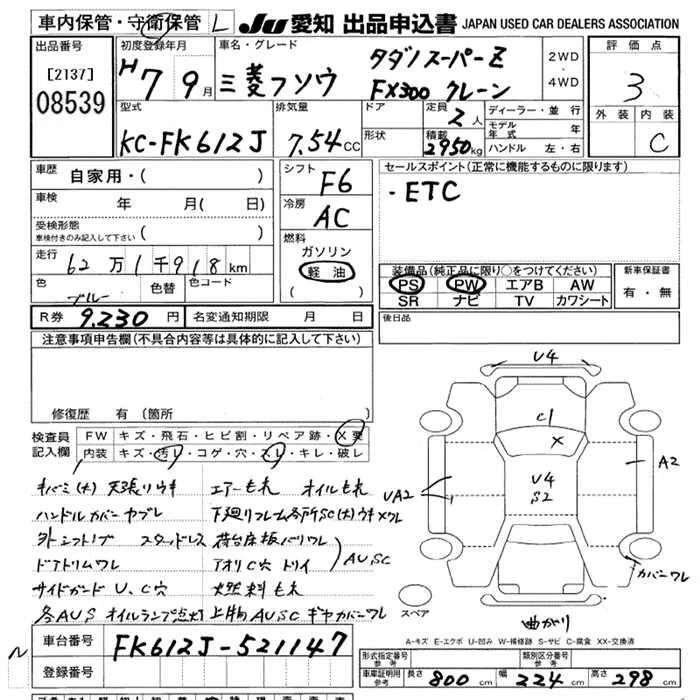 車内保管・守衛保管 L JU 愛知 出品申込書 JAPAN USED CAR DEALERS ASSOCIATION
出品番号 [2137] 08539
初度登録年月 H7 9月
車名・グレード 三菱フソウ タダノスーパーZ FX300 クレーン
2WD ・ 4WD
評価点 3
外装 内装 C
型式 KC-FK612J
排気量 7.54CC
ドア 形状
定員 2人
積載 2950kg
ディーラー・並行
モデル年式 年
ハンドル 左・右
車歴 自家用・( )
車検 年 月( 日)
受検形態 車検付きのみ記入して下さい ( )
走行 62万1千918km
色 ブルー 色替 色コード
シフト F6
冷房 AC
燃料 ガソリン 軽油 ( )
セールスポイント(正常に機能するものに限ります)
・ETC
装備品(純正品に限り○をつけてください)
PS PW エアB AW
SR ナビ TV カワシート
新車保証書 有・無
R券 9.230円 名変通知期限 月 日
後日品
注意事項申告欄(不具合内容等は具体的に記入して下さい)
修復歴 有(箇所
検査員記入欄
FW キズ・飛石・ヒビ割・リペア跡・X要
内装 キズ・汚レ・コゲ・穴・スレ・キレ・破レ
キバミ(大) 天張リウキ エアーモレ オイルモレ
ハンドルカバーヤブレ 下廻リフレーム各所SC(大)ウキメクレ
外シフトノブ スタッドレス 荷台床板バリワレ
ドアトリムワレ アオリC穴トリイ AU,SC
サイドガード U、C穴 燃料モレ
各AUS オイルランプ点灯 上物AUSC ギヤカバーワレ
U4
C1
X
U4
S2
UA2
A2
カバーワレ
スペア
曲がり
A-キズ E-エクボ U-凹み W-補修跡 S-サビ C-腐食 XX-交換済
車台番号 FK612J-521147
登録番号
形式指定番号 参考
類別区分番号 参考
車庫証明用 参考 長さ 800cm 幅 224cm 高さ 298cm